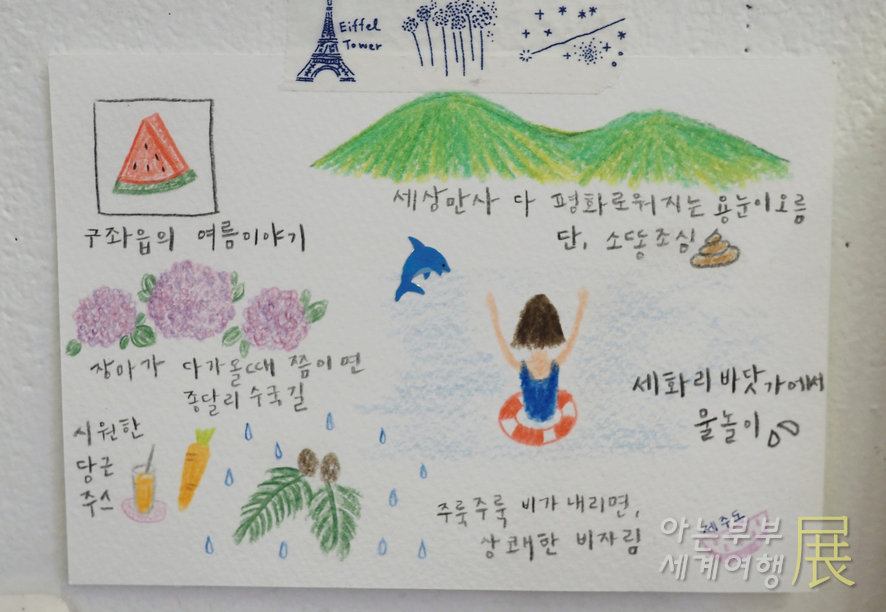 Eiffel
Tower
세상만사 다 평화로워지는 용눈이오름
단, 소똥조심
구좌읍의 여름이야기
장마가 다가올때 쯤이면
종달리 수국길
세화리 바닷가에서
물놀이
시원한
당근
주스
주룩주룩 비가 내리면,
상쾌한 비자림
제주도
아는부부
세계여행 展